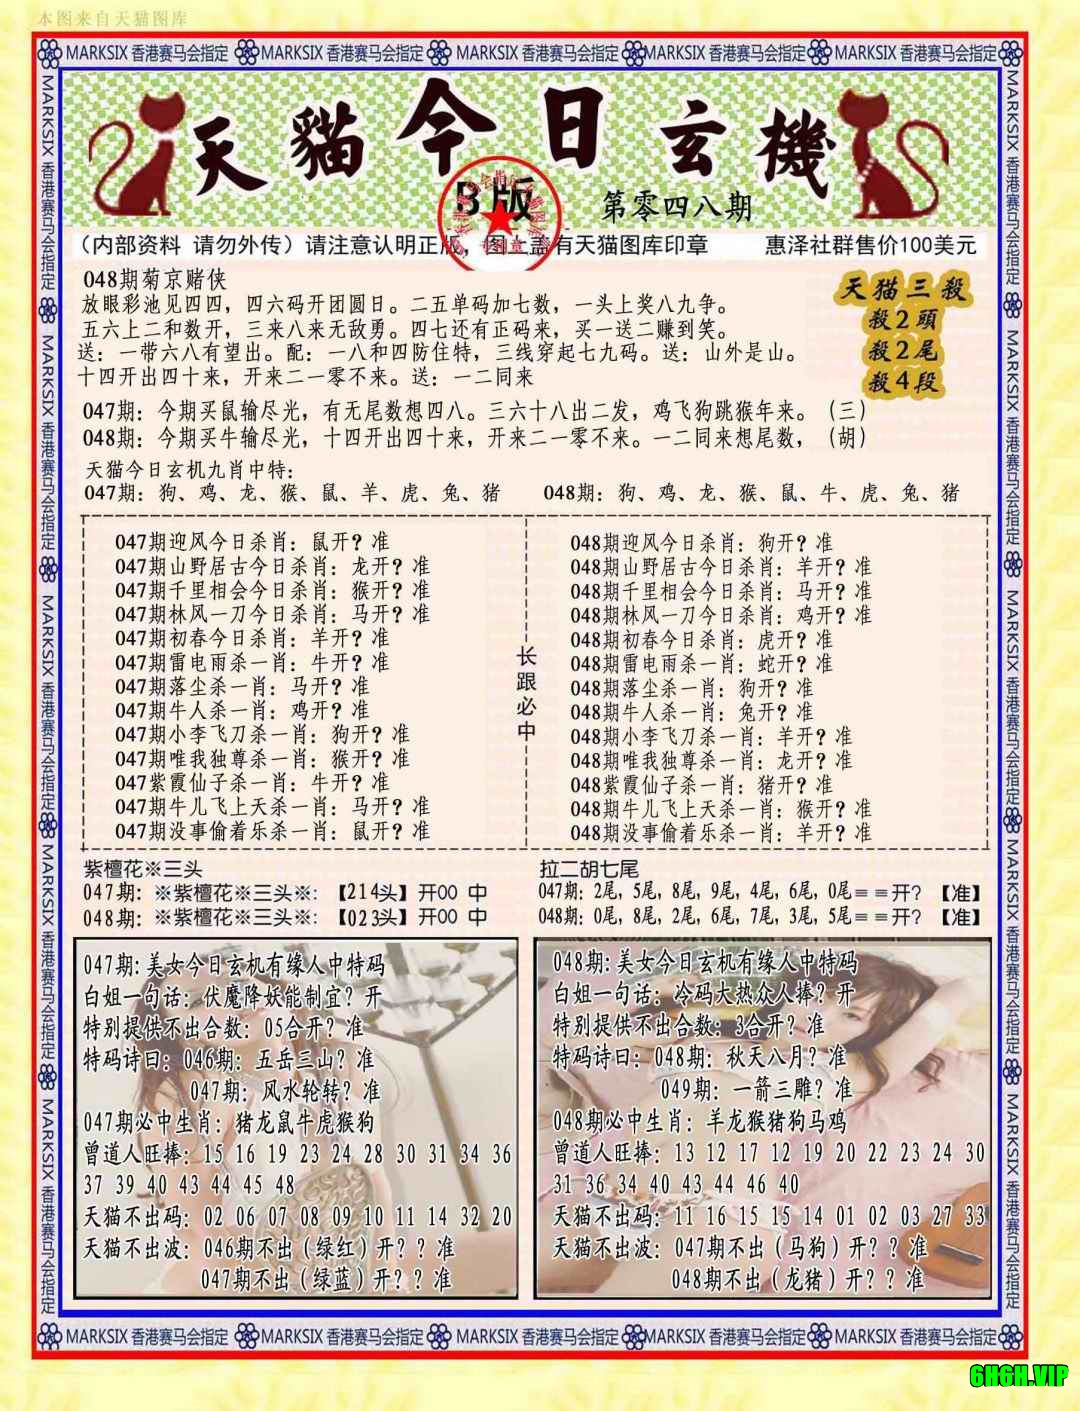 本图来自天猫图库
MARKSIX 香港赛马会指定 MARKSIX 香港赛马会指定 MARKSIX 香港赛马会指定 MARKSIX 香港赛马会指定 MARKSIX 香港赛马会指定
天貓今日玄機
B版
第零四八期
(内部资料 请勿外传) 请注意认明正版,图上盖有天猫图库印章 惠泽社群售价100美元
048期菊京赌侠
放眼彩池见四四,四六码开团圆日。二五单码加七数,一头上奖八九争。
五六上二和数开,三来八来无敌勇。四七还有正码来,买一送二赚到笑。
送:一带六八有望出。配:一八和四防住特,三线穿起七九码。送:山外是山。
十四开出四十来,开来二一零不来。送:一二同来
天猫三殺
殺2頭
殺2尾
殺4段
047期:今期买鼠输尽光,有无尾数想四八。三六十八出二发,鸡飞狗跳猴年来。(三)
048期:今期买牛输尽光,十四开出四十来,开来二一零不来。一二同来想尾数,(胡)
天猫今日玄机九肖中特:
047期:狗、鸡、龙、猴、鼠、羊、虎、兔、猪 048期:狗、鸡、龙、猴、鼠、牛、虎、兔、猪
047期迎风今日杀肖:鼠开?准
047期山野居古今日杀肖:龙开?准
047期千里相会今日杀肖:猴开?准
047期林风一刀今日杀肖:马开?准
047期初春今日杀肖:羊开?准
047期雷电雨杀一肖:牛开?准
047期落尘杀一肖:马开?准
047期牛人杀一肖:鸡开?准
047期小李飞刀杀一肖:狗开?准
047期唯我独尊杀一肖:猴开?准
047紫霞仙子杀一肖:牛开?准
047期牛儿飞上天杀一肖:马开?准
047期没事偷着乐杀一肖:鼠开?准
长跟必中
048期迎风今日杀肖:狗开?准
048期山野居古今日杀肖:羊开?准
048期千里相会今日杀肖:马开?准
048期林风一刀今日杀肖:鸡开?准
048期初春今日杀肖:虎开?准
048期雷电雨杀一肖:蛇开?准
048期落尘杀一肖:狗开?准
048期牛人杀一肖:兔开?准
048期小李飞刀杀一肖:羊开?准
048期唯我独尊杀一肖:龙开?准
048紫霞仙子杀一肖:猪开?准
048期牛儿飞上天杀一肖:猴开?准
048期没事偷着乐杀一肖:羊开?准
紫檀花※三头
047期:※紫檀花※三头※:【214头】开00 中
048期:※紫檀花※三头※:【023头】开00 中
拉二胡七尾
047期:2尾,5尾,8尾,9尾,4尾,6尾,0尾==开?【准】
048期:0尾,8尾,2尾,6尾,7尾,3尾,5尾==开?【准】
047期:美女今日玄机有缘人中特码
白姐一句话:伏魔降妖能制宜?开
特别提供不出合数:05合开?准
特码诗曰:046期:五岳三山?准
047期:风水轮转?准
047期必中生肖:猪龙鼠牛虎猴狗
曾道人旺捧:15 16 19 23 24 28 30 31 34 36
37 39 40 43 44 45 48
天猫不出码:02 06 07 08 09 10 11 14 32 20
天猫不出波:046期不出(绿红)开??准
047期不出(绿蓝)开??准
048期:美女今日玄机有缘人中特码
白姐一句话:冷码大热众人捧?开
特别提供不出合数:3合开?准
特码诗曰:048期:秋天八月?准
049期:一箭三雕?准
048期必中生肖:羊龙猴猪狗马鸡
曾道人旺捧:13 12 17 12 19 20 22 23 24 30
31 36 34 40 43 44 46 40
天猫不出码:11 16 15 15 14 01 02 03 27 33
天猫不出波:047期不出(马狗)开??准
048期不出(龙猪)开??准
MARKSIX 香港赛马会指定 MARKSIX 香港赛马会指定 MARKSIX 香港赛马会指定 MARKSIX 香港赛马会指定 MARKSIX 香港赛马会指定
MARKSIX 香港赛马会指定 MARKSIX 香港赛马会指定 MARKSIX 香港赛马会指定 MARKSIX 香港赛马会指定 MARKSIX 香港赛马会指定
MARKSIX 香港赛马会指定 MARKSIX 香港赛马会指定 MARKSIX 香港赛马会指定 MARKSIX 香港赛马会指定 MARKSIX 香港赛马会指定
6HGH.VIP